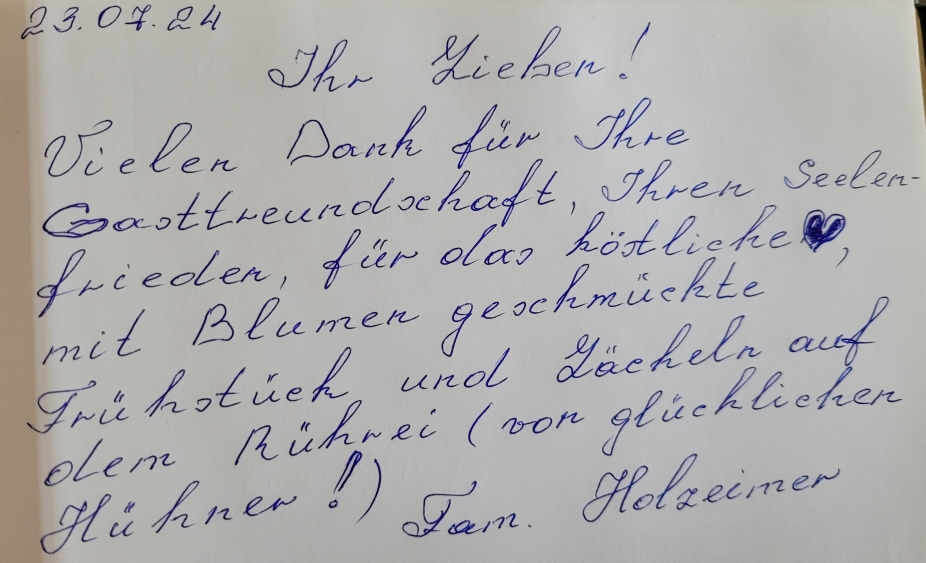 23.07.24
Ihr Lieben!
Vielen Dank für Ihre
Gastfreundschaft, Ihren Seelen-
frieden, für das köstliche ♥,
mit Blumen geschmückte
Frühstück und Lächeln auf
dem Rührei (von glücklichen
Hühner!)
Fam. Holzeimer